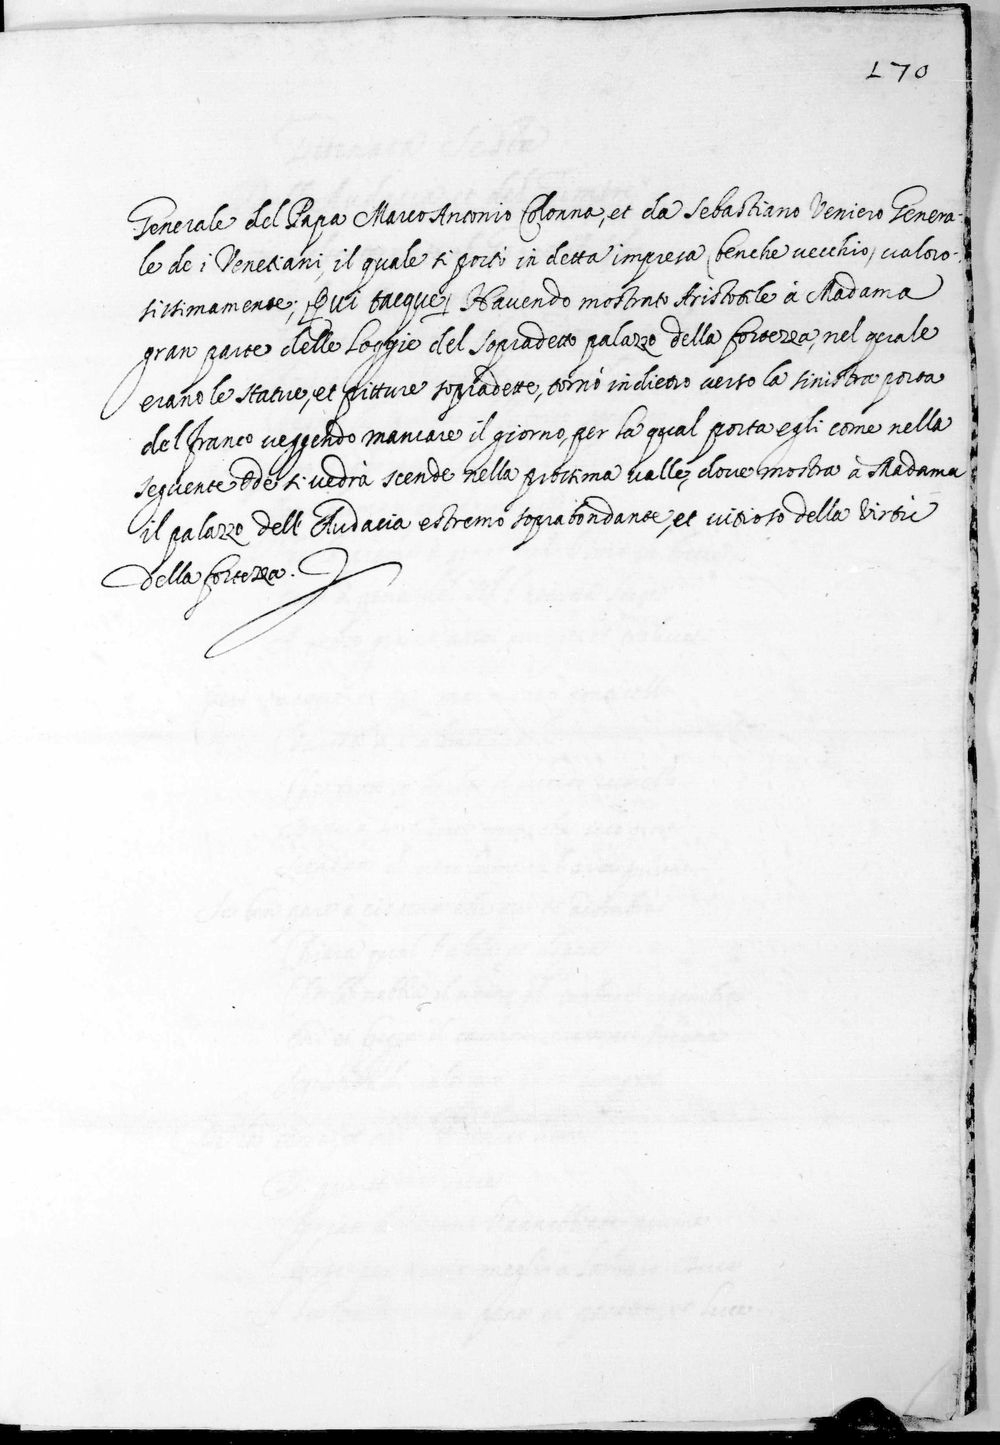 170
Generale del Papa Marco Antonio Colonna, et da Sebastiano Veniero Genera-
le de i Venetiani, il quale si portò in detta impresa (benche vecchio) valoro-
sissimamente; [Qui tacque] Havendo mostrato Aristotile à Madama
gran parte delle Loggie del sopradetto palazzo della fortezza, nel quale
erano le statue, et pitture sopradette, tornò indietro verso la sinistra porta
del fianco veggendo mancare il giorno, per la qual porta egli come nella
seguente Ode si vedrà scende nella prossima valle, dove mostra à Madama
il palazzo dell'Audacia estremo soprabondante, et vitioso della Virtù
della fortezza.